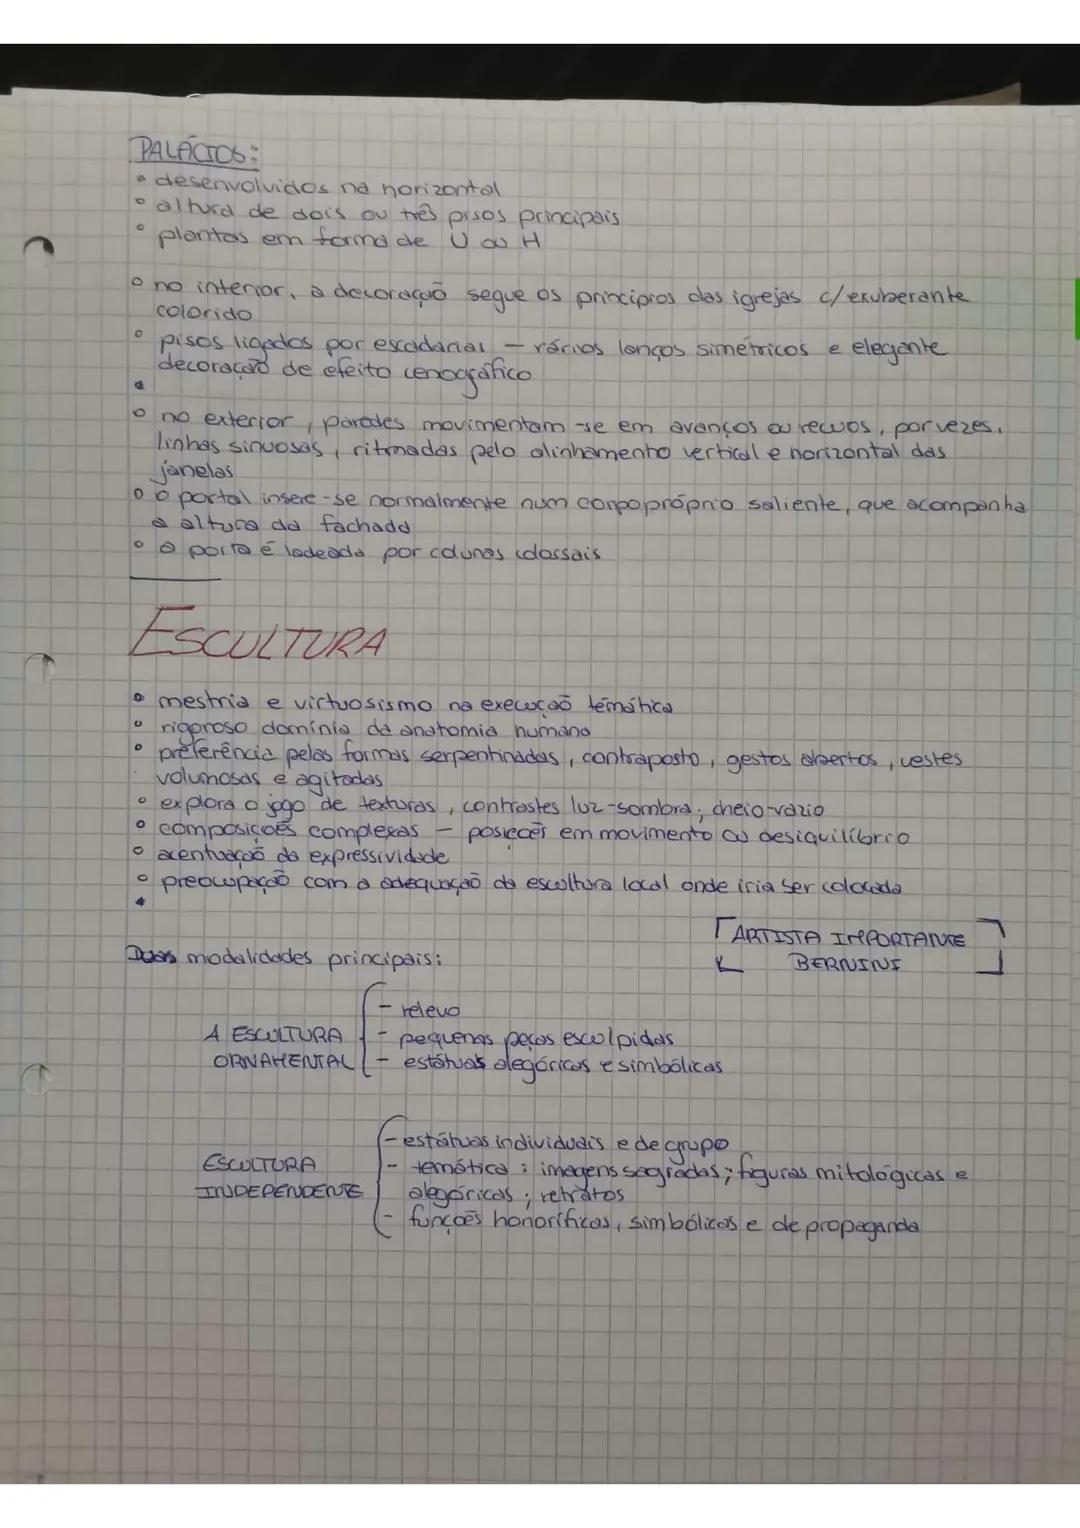 PALÁCIOS:
• desenvolvidos na horizontal
• altura de dois ou três pisos principais
• plantas em forma de U ou H
• no interior, a decoração segue os princípios das igrejas c/ exuberante
colorido
• pisos ligados por escadarias – vários lanços simétricos e elegante
decoração de efeito cenográfico
•
• no exterior, paredes movimentam-se em avanços ou recuos, por vezes,
linhas sinuosas, ritmadas pelo alinhamento vertical e horizontal das
janelas
• o portal insere-se normalmente num corpo próprio saliente, que acompanha
a altura da fachada
• a porta é ladeada por colunas colossais
ESCULTURA
• mestria e virtuosismo na execução temática
• rigoroso domínio da anatomia humana
• preferência pelas formas serpentinadas, contraposto, gestos abertos, vestes
volumosas e agitadas
• explora o jogo de texturas, contrastes luz-sombra; cheio-vazio
• composições complexas – posiecês em movimento ou desiquilíbrio
• acentuação da expressividade
• preocupação com a adequação da escultura local onde iria ser colocada
•
ARTISTA IMPORTANTE
BERNINI
Duas modalidades principais:
A ESCULTURA
ORNAMENTAL
- relevo
- pequenas peças esculpidas
- estátuas alegóricas e simbólicas
ESCULTURA
INDEPENDENTE
- estátuas individuais e de grupo
- temática: imagens sagradas; figuras mitológicas e
alegóricas; retratos
- funções honoríficas, simbólicas e de propaganda